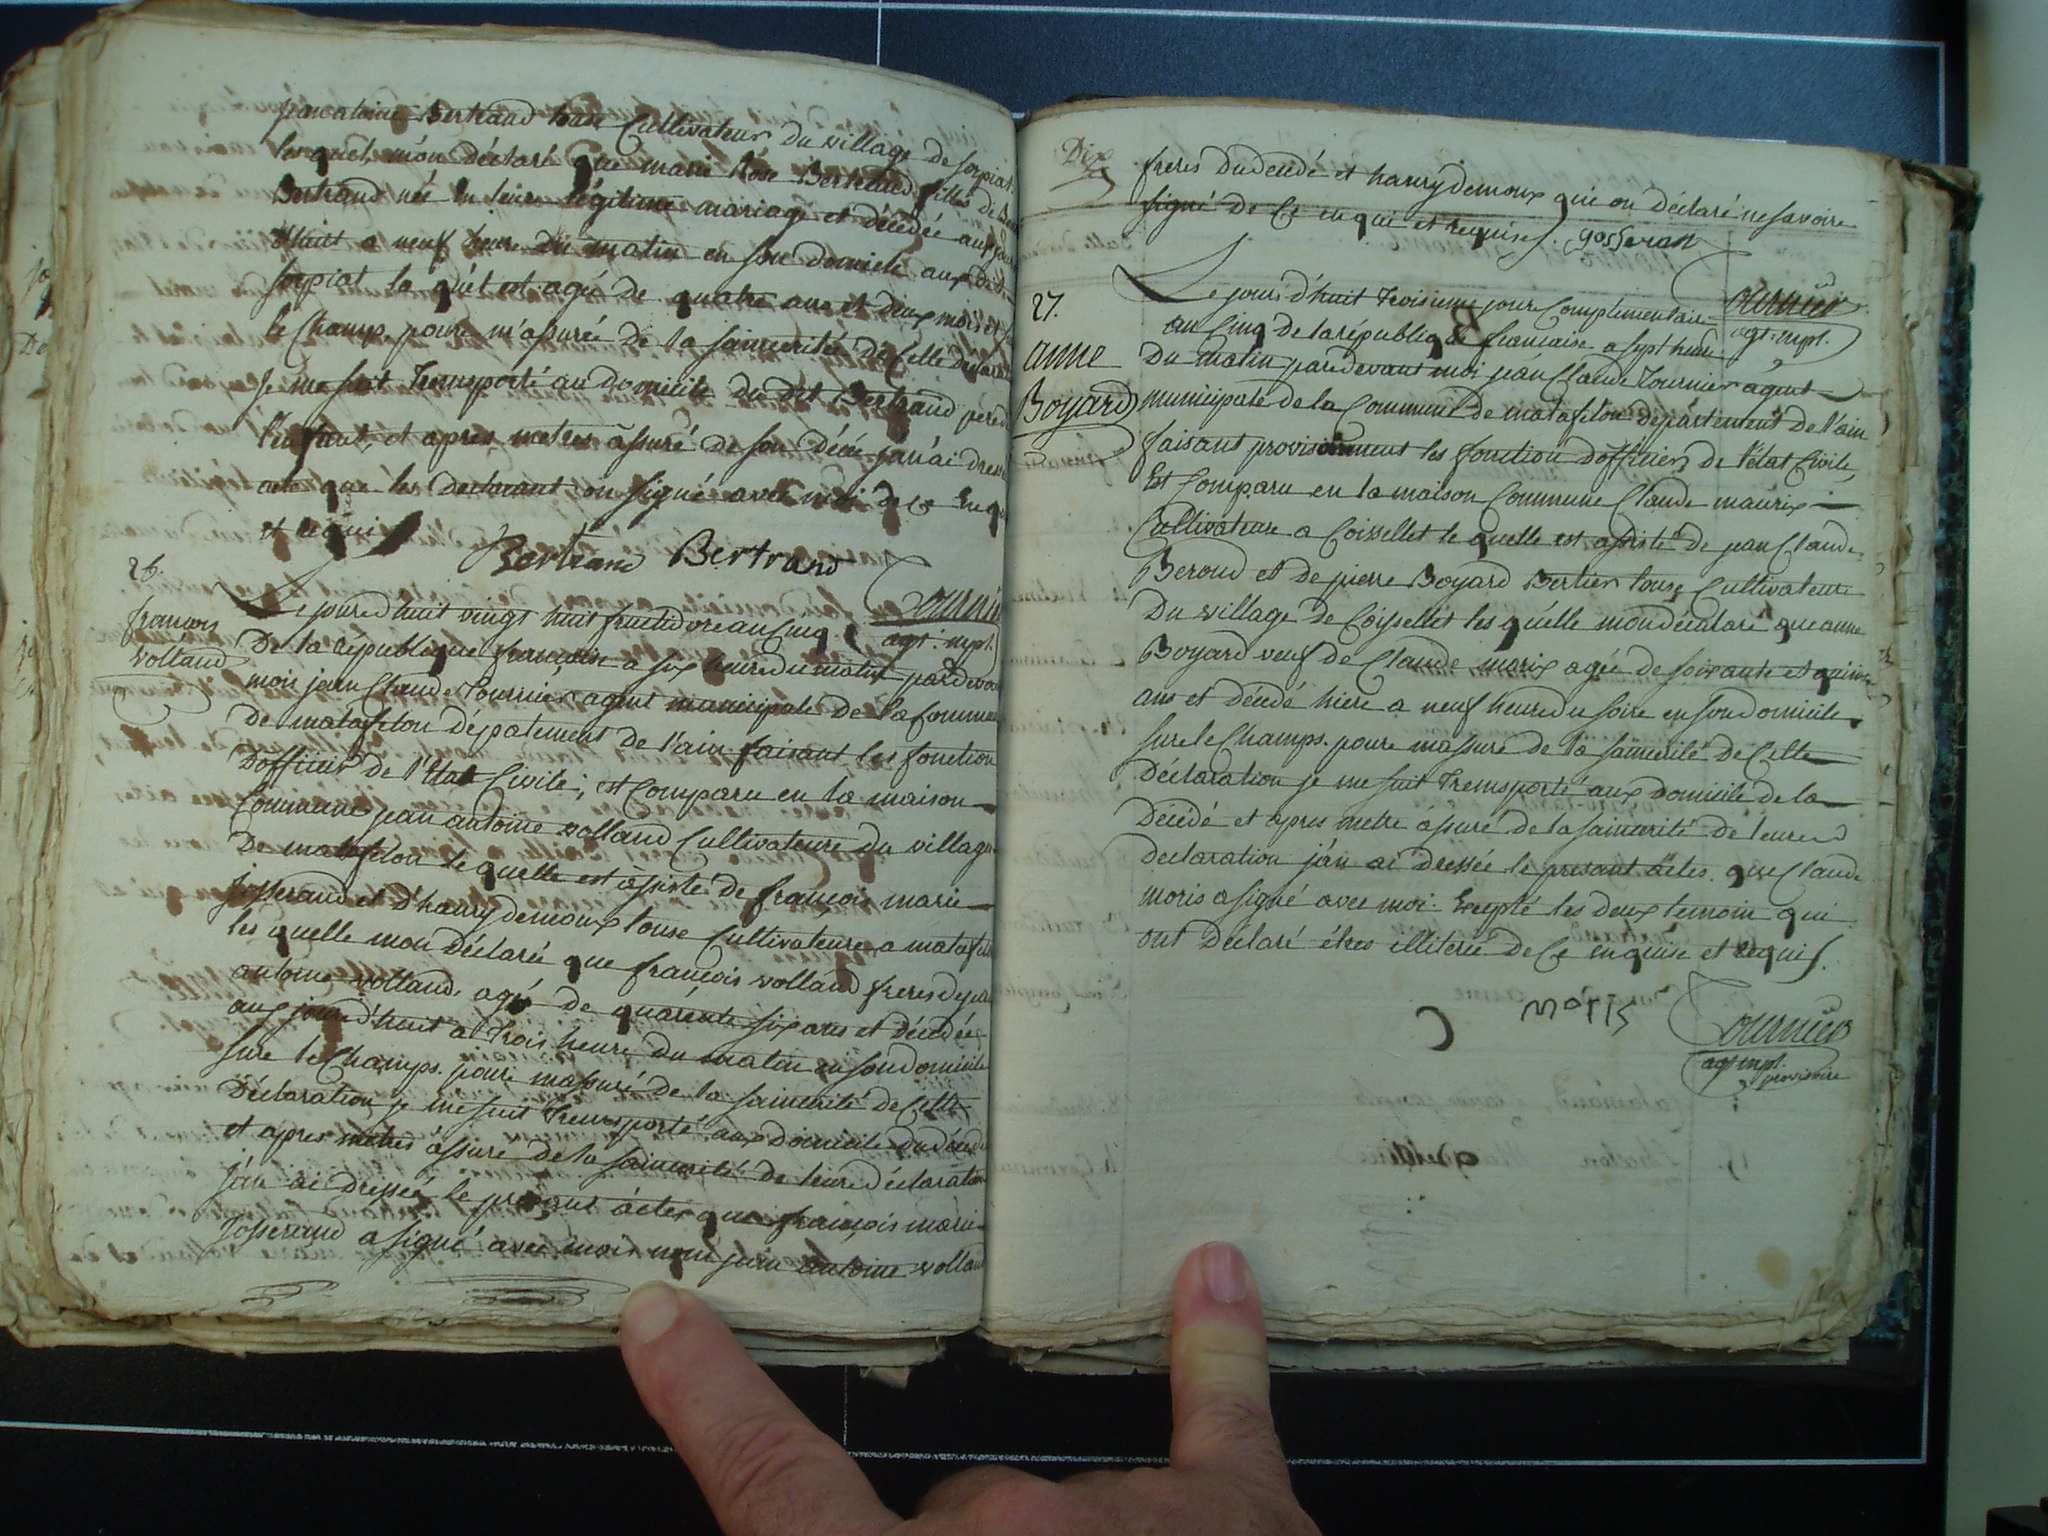 jeancatoine Bertrand touse Cultivateur du village de sorpiat
lesquel mon déclaré que marie Rose Bertrand fille de
Bertrand née en leur légitime mariage et décédée
d'huit a neuf heure du matin en son domicile aux dit
sorpiat la quél est agée de quatre ans et deux mois et
le Champs poure m'assurée de la sainceritée de Celle
Je me suit Transporté au domicile du dit Bertrand pere
l'enfant, et apres metres assuré de son décé j'an ai
acte que les Declarant on signé avec moi de ce
et requis
Bertrand Bertrand
Tournier
agt: mpl.
26.
francois
volland
Le joure d'huit vingt huit fructidore an Cinq
De la république francaise a six heure du matin pardeva
moi jean Claude Tournier agent municipale de la Commune
de matafelon depatement de l'ain faisant les fonction
Dofficier de l'état Civile; est Comparu en la maison
Commune jean antoine volland Cultivateure du village
De matafelon le quelle est assisté de françois marie
Josserand et d'hanry demoux touse Cultivateure a matafelon
les quelle mon Déclaré que françois volland freres de jean
antoine volland, agé de quarente six ans et décédée
aux joure d'huit a Trois heure du matin en son domicile
sure le Champs poure massuré de la sainceritë de Cette
Déclaration je me suit Transporté aux domicile du décédé
et apres metres assuré de la sainceritë de leure déclaration
j'an ai dressée le presant actes que françois marie
Josserand a signé avec moi nom jean antoine volland
Dix
freres du decedé et hanry demoux qui on déclaré ne savoire
signé de Ce enqui et requis. gosseran
Tournier
agt: mpl.
27.
anne
Boyard
Le joure d'huit Troisieme jour Complémentaire
an Cinq de la république francaise a sept heure
Du matin pardevant moi jean Claude Tournier agent
municipale de la Commune de matafelon departement de l'ain
faisant provisoirement les fonction dofficier de l'état Civile,
Est Comparu en la maison Commune Claude maurix
Cultivateure a Coissellet le quelle est assisté de jean Claude
Beroud et de pierre Boyard Bertier touse Cultivateure
Du village de Coissellet les quélle mon declaré que anne
Boyard veuf de Claude morix agée de soixante et quinze
ans et décédé hiere a neuf heure du soire en son domicile
sure le Champs. poure massuré de la sainceritë de Cette
Déclaration je me suit Transporté aux domicile de la
Décédé et apres metre assuré de la sainceritë de leure
declaration j'an ai dressée le presant actes. que Claude
moris a signé avec moi. Excepté les deux temoin qui
ont déclaré étres illiteré de Ce enquise et requis.
C moris
Tournier
agt mpl.
provisoire